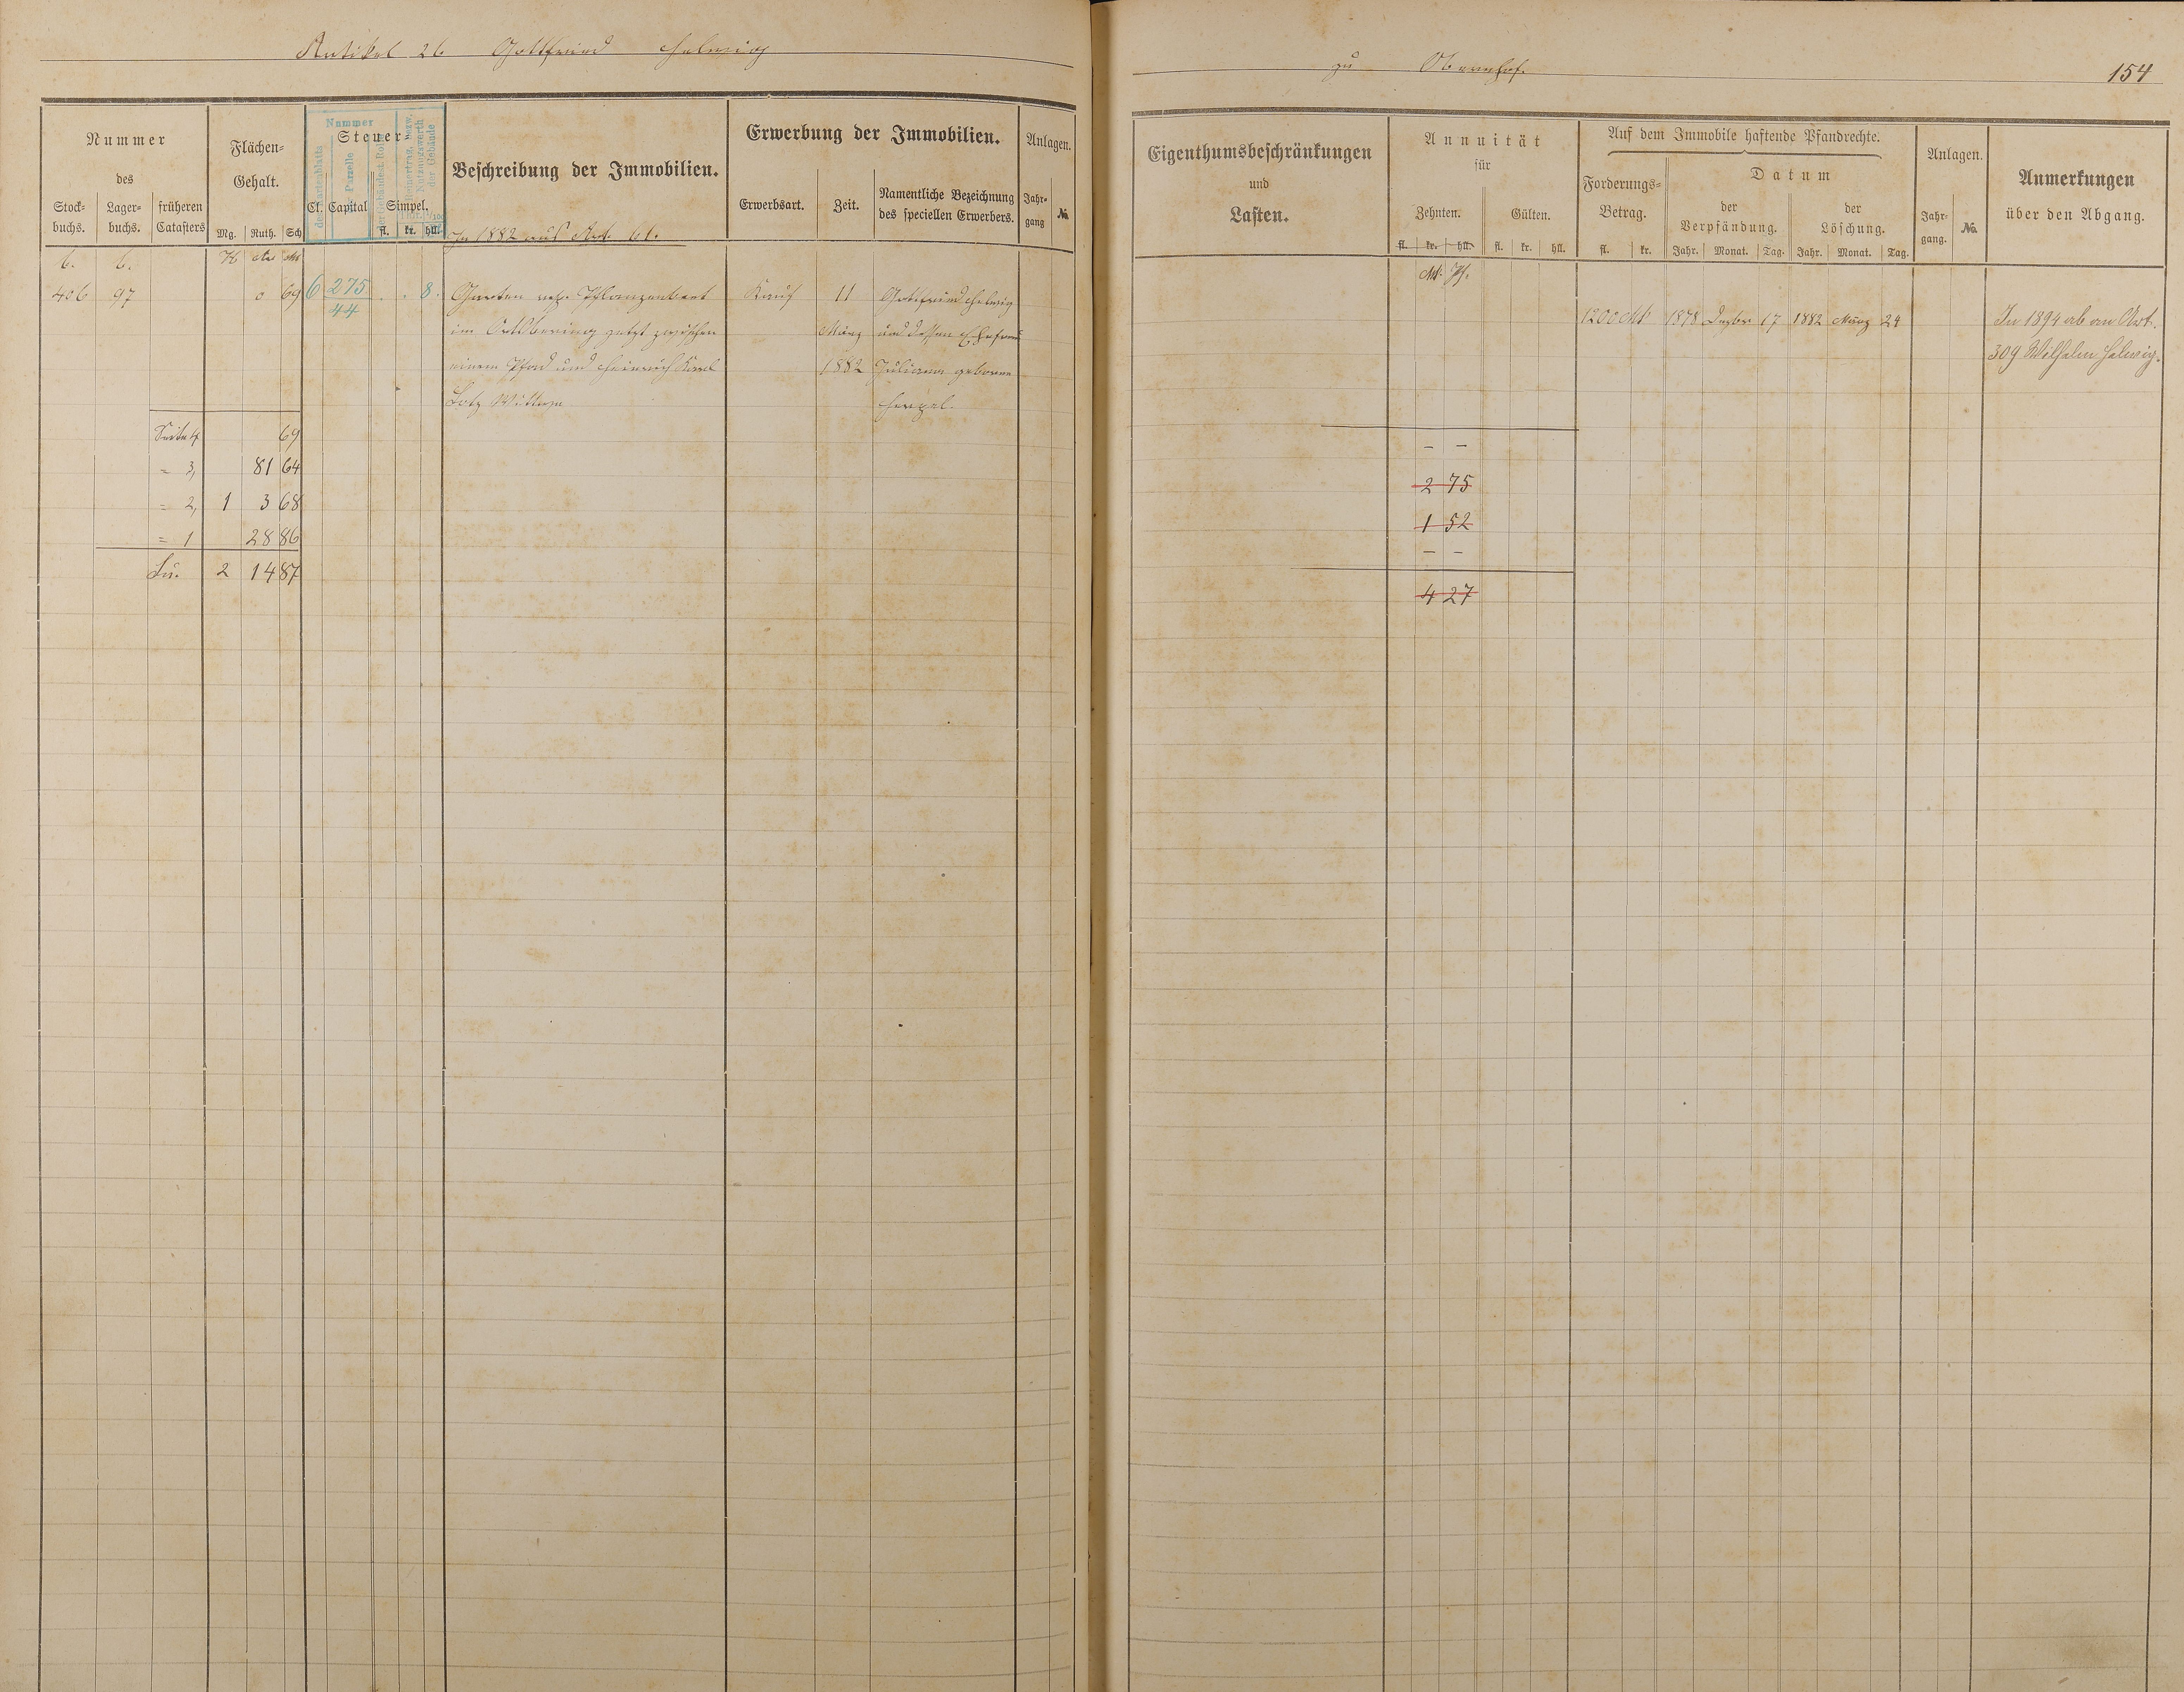 Artikel 26 Gottfried Helwig
zu Obernhof.
154
Nummer
des
Stock-
buchs.
Lager-
buchs.
früheren
Catasters
Flächen-
Gehalt.
Mg. Ruth. Sch
Nummer
des Kartenblatts
Parzelle
Steuer-
Cl. Capital
Simpel.
fl. kr. hll.
Beschreibung der Immobilien.
Erwerbung der Immobilien.
Erwerbsart.
Zeit.
Namentliche Bezeichnung
des speciellen Erwerbers.
Anlagen.
Jahr-
gang
No.
Eigenthumsbeschränkungen
und
Lasten.
Annuität
für
Zehnten.
Gülten.
fl. kr. hll. fl. kr. hll.
Auf dem Immobile haftende Pfandrechte.
Forderungs-
Betrag.
fl. kr.
Datum
der
Verpfändung.
der
Löschung.
Jahr. Monat. Tag. Jahr. Monat. Tag.
Anlagen.
Jahr-
gang.
No.
Anmerkungen
über den Abgang.
In 1882 aus Art. 61.
6. 6. H Ar M
406 97 0 69 6 275 8.
44
Garten resp. Pflanzenbeet
im Ortsbering jetzt zwischen
einem Pfad und Heinrich Karl
Lotz Wittwe
Kauf
11
März
1882
Gottfried Helwig
und dessen Ehefrau
Juliana geborne
Mk. Pf.
1200 Mk 1878 Dezbr 17 1882 März 24
In 1894 ab an Art.
309 Wilhelm Helwig.
Seite 4 69
= 3, 81 64
= 2, 1 3 68
= 1 28 86
Su. 2 14 87
– –
2 75
1 52
– –
4 27